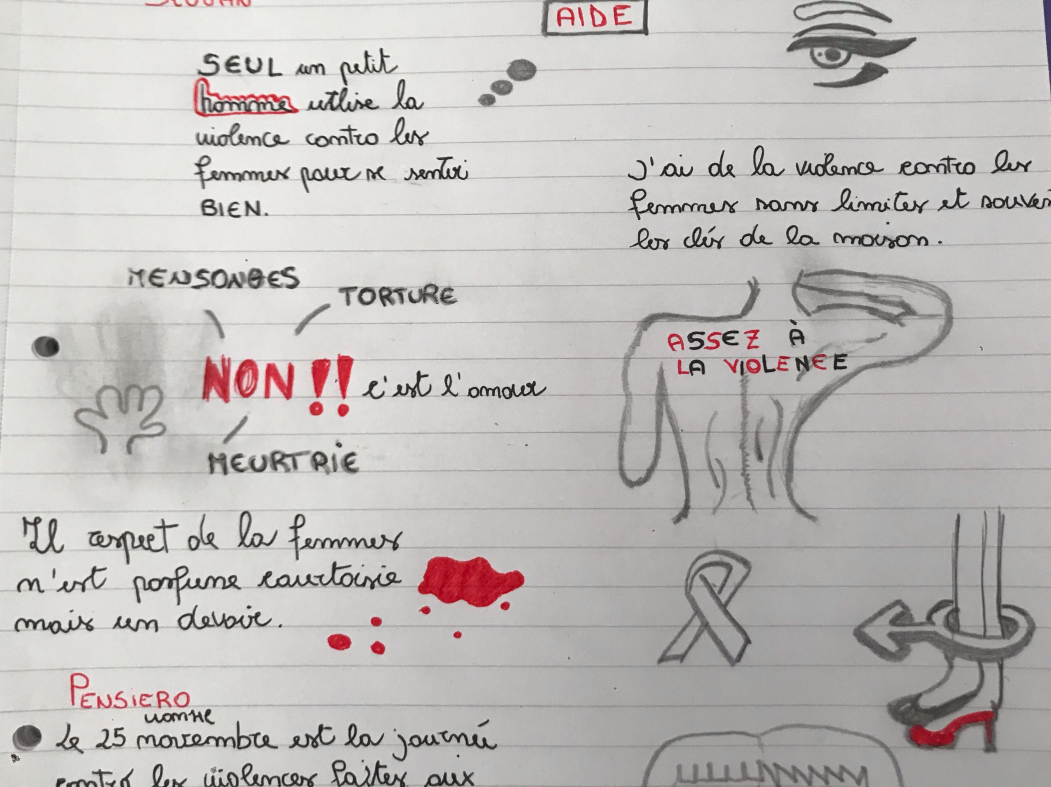 AIDE
SEUL un petit
homme utlise la
violence contro les
femmes pour se sentir
BIEN.
J'ai de la violence contro les
femmes sans limites et
les clés de la maison.
MENSONGES
TORTURE
NON !! c'est l'amour
MEURTRIE
ASSEZ À
LA VIOLENCE
Il respect de la femmes
n'est
mais un devoir.
PENSIERO
Le 25 novembre est la journée
les violences faites aux